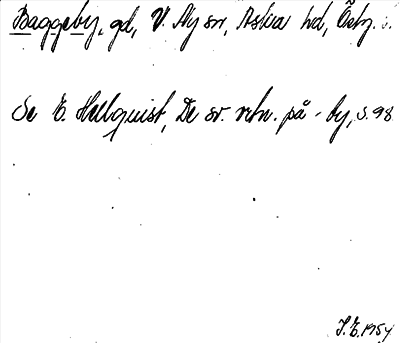 Baggeby, gd, V. Ny sn, Aska hd, Östg.
Se E. Hellquist, De sv. ortn. på -by, s. 98.
1954